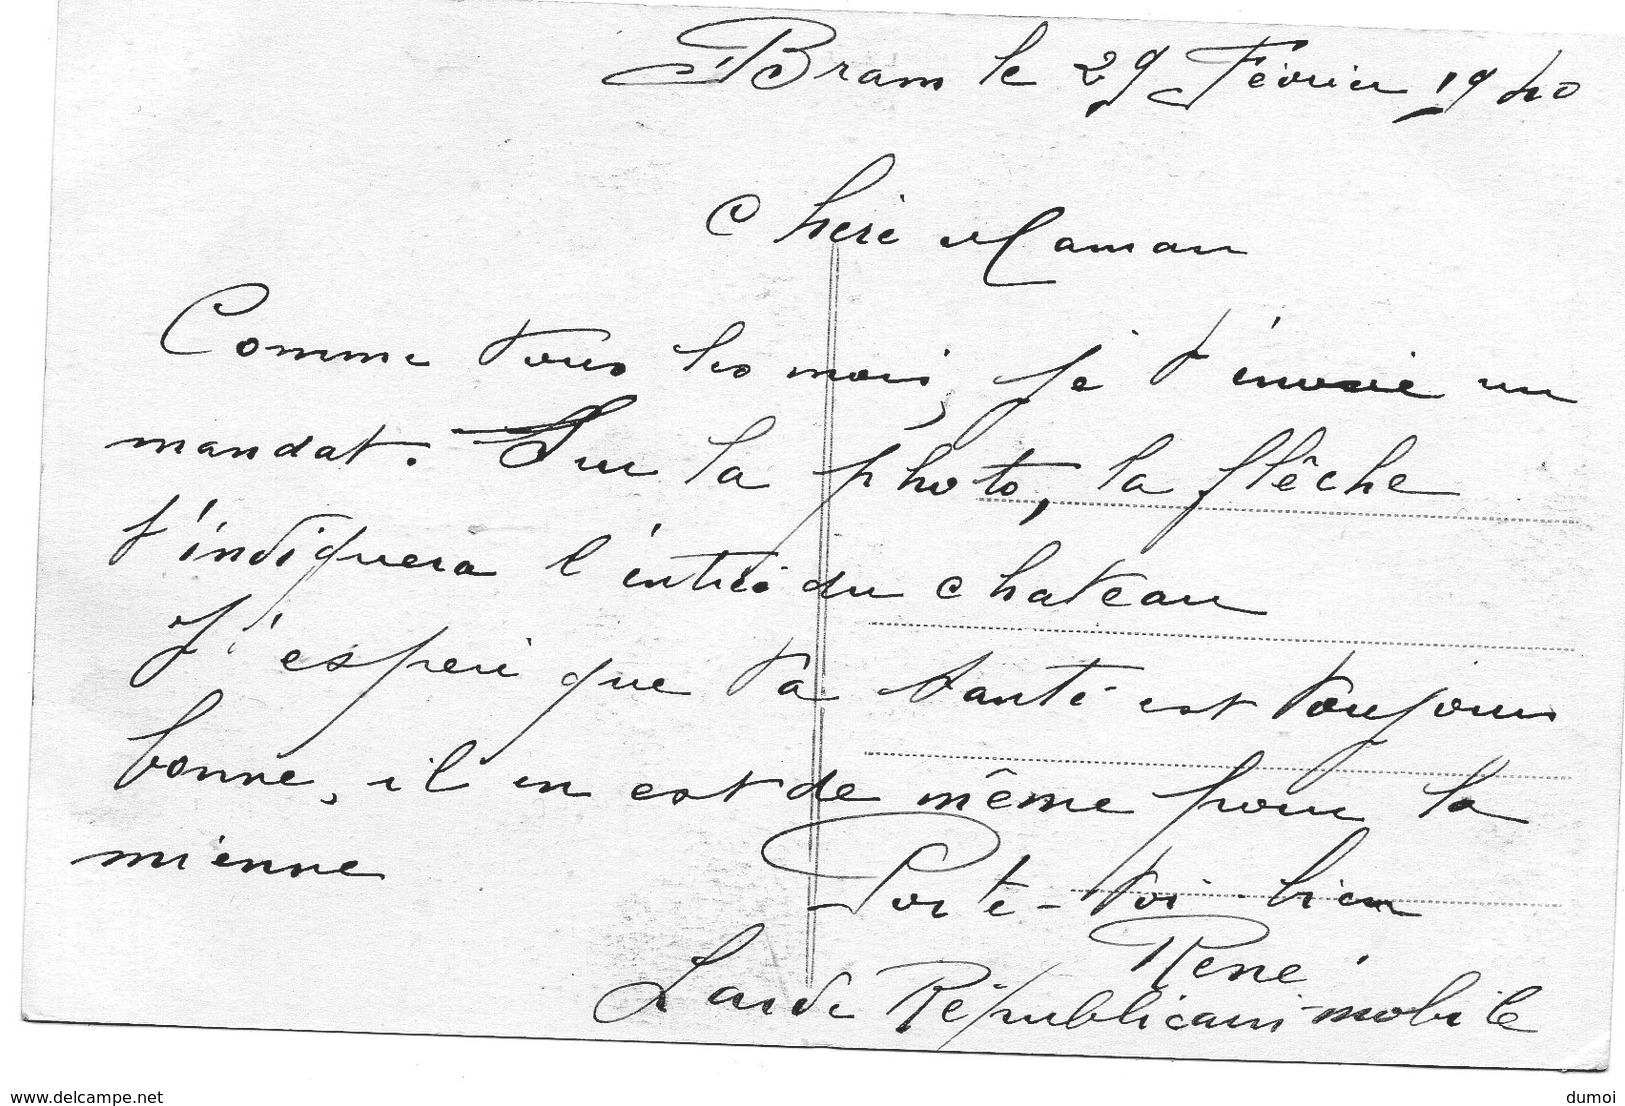 Bram le 29 Février 1940
Chère Maman
Comme tous les mois, je t'envoie un
mandat. Sur la photo, la flêche
t'indiquera l'entrée du chateau
J'espère que ta santé est toujours
bonne, il en est de même pour la
mienne
Porte-toi bien
René
Garde Républicain mobile
www.delcampe.net
dumoi